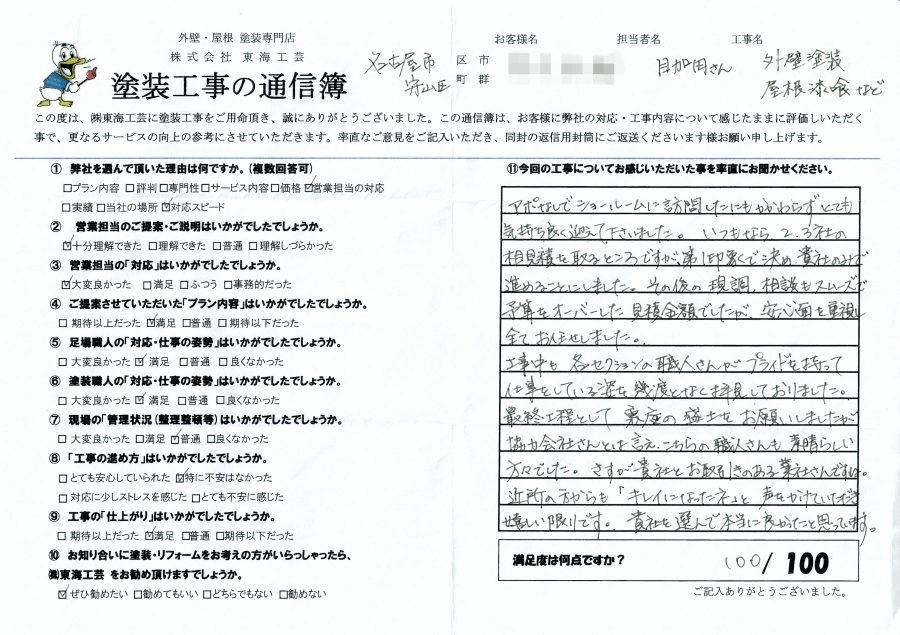 外壁・屋根 塗装専門店
株式会社 東海工芸
塗装工事の通信簿
名古屋市 区 市
守山区 町 群
お客様名 担当者名 工事名
目加田さん 外壁塗装
屋根漆喰など
この度は、㈱東海工芸に塗装工事をご用命頂き、誠にありがとうございました。この通信簿は、お客様に弊社の対応・工事内容について感じたままに評価しいただく
事で、更なるサービスの向上の参考にさせていただきます。率直なご意見をご記入いただき、同封の返信用封筒にご返送くださいます様お願い申し上げます。
① 弊社を選んで頂いた理由は何ですか。(複数回答可)
□プラン内容 □評判 □専門性 □サービス内容 □価格 ☑営業担当の対応
□実績 □当社の場所 ☑対応スピード
② 営業担当のご提案・ご説明はいかがでしたでしょうか。
☑十分理解できた □理解できた □普通 □理解しづらかった
③ 営業担当の「対応」はいかがでしたでしょうか。
☑大変良かった □満足 □ふつう □事務的だった
④ ご提案させていただいた「プラン内容」はいかがでしたでしょうか。
□ 期待以上だった ☑満足 □普通 □期待以下だった
⑤ 足場職人の「対応・仕事の姿勢」はいかがでしたでしょうか。
□ 大変良かった ☑ 満足 □普通 □良くなかった
⑥ 塗装職人の「対応・仕事の姿勢」はいかがでしたでしょうか。
□ 大変良かった ☑ 満足 □普通 □良くなかった
⑦ 現場の「管理状況(整理整頓等)はいかがでしたでしょうか。
□ 大変良かった □満足 ☑普通 □良くなかった
⑧ 「工事の進め方」はいかがでしたでしょうか。
□とても安心していられた ☑特に不安はなかった
□対応に少しストレスを感じた □とても不安に感じた
⑨ 工事の「仕上がり」はいかがでしたでしょうか。
□期待以上だった ☑満足 □普通 □期待以下だった
⑩ お知り合いに塗装・リフォームをお考えの方がいらっしゃったら、
㈱東海工芸 をお勧め頂けますでしょうか。
☑ぜひ勧めたい □勧めてもいい □どちらでもない □勧めない
⑪今回の工事についてお感じいただいた事を率直にお聞かせください。
アポなしでショールームに訪問したにもかかわらずとても
気持ち良く迎えて下さいました。いつもなら 2、3社の
相見積を取るところですが、第1印象で決め貴社のみで
進めることにしました。その後の現調、相談もスムーズで
予算をオーバーした見積金額でしたが、安心面を重視し
全てお任せしました。
工事中も各セクションの職人さんがプライドを持って
仕事をしている姿を幾度となく拝見しておりました。
最終工程として裏庭の盛土をお願いしましたが
協力会社さんとは言え、こちらの職人さんも素晴らしい
方々でした。さすが貴社とお取引きのある業社さんですね。
近所の方からも「キレイになったネ」と声をかけていただき
嬉しい限りです。貴社を選んで本当に良かったと思ってます。
満足度は何点ですか? 100/ 100
ご記入ありがとうございました。